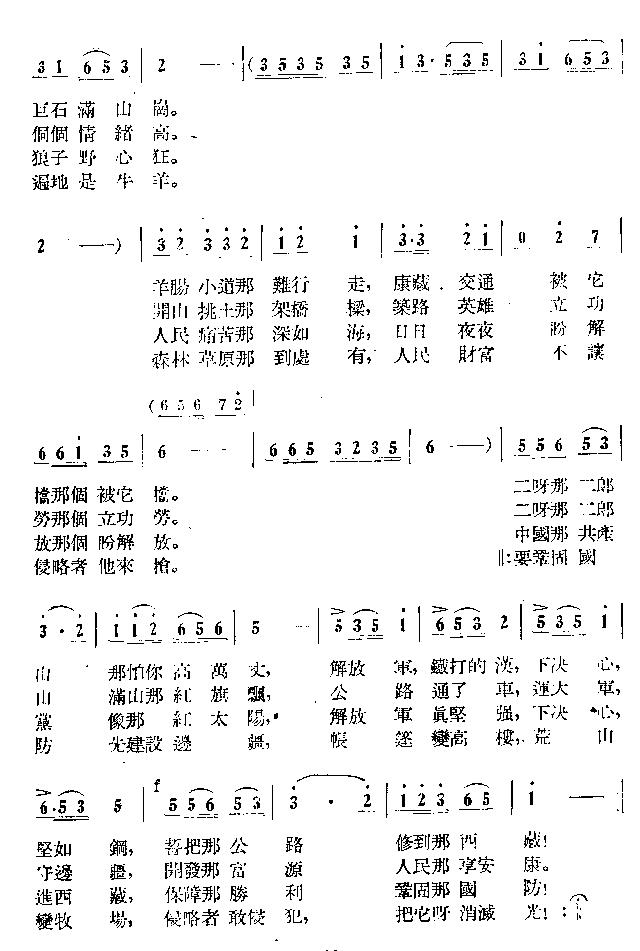 3 1 6 5 3 | 2 — — | (3 5 3 5 3 5 | 1 3 · 5 3 5 | 3 1 6 5 3 |
巨石 滿 山 崗。
個個 情 緒 高。
狼子 野 心 狂。
遍地 是 牛 羊。
2 — —) | 3 2 3 3 2 | 1 2 1 | 3 · 3 2 1 | 0 2 7 |
羊腸 小道那 難行 走, 康藏 交通 被它
開山 挑土那 架橋 樑, 築路 英雄 立功
人民 痛苦那 深如 海, 日日 夜夜 盼解
森林 草原那 到處 有, 人民 財富 不讓
(6 5 6 7 2 |
6 6 1 3 5 | 6 — — | 6 6 5 3 2 3 5 | 6 — —) | 5 5 6 5 3 |
擋那個 被它 擋。 二呀那 二郎
勞那個 立功 勞。 二呀那 二郎
放那個 盼解 放。 中國那 共產
侵略者 他來 搶。 要鞏固 國
3 · 2 | 1 1 2 6 5 6 | 5 — | 5 3 5 1 | 6 5 3 2 | 5 3 5 1 |
山 那怕你 高 萬 丈, 解放 軍, 鐵打的 漢, 下决 心,
山 滿山那 紅 旗 飄, 公 路 通了 車, 運大 軍,
黨 像那 紅 太 陽, 解放 軍 眞堅 强, 下决 心,
防 先建設 邊 疆, 帳 篷 變高 樓, 荒 山
6 · 5 3 5 | 5 5 6 5 3 | 3 · 2 | 1 2 3 6 5 | 1 — |
f
堅如 鋼, 誓把那 公 路 修到那 西 藏!
守邊 疆, 開發那 富 源 人民那 享安 康。
進西 藏, 保障那 勝 利 鞏固那 國 防!
變牧 場, 侵略者 敢侵 犯, 把它呀 消滅 光!